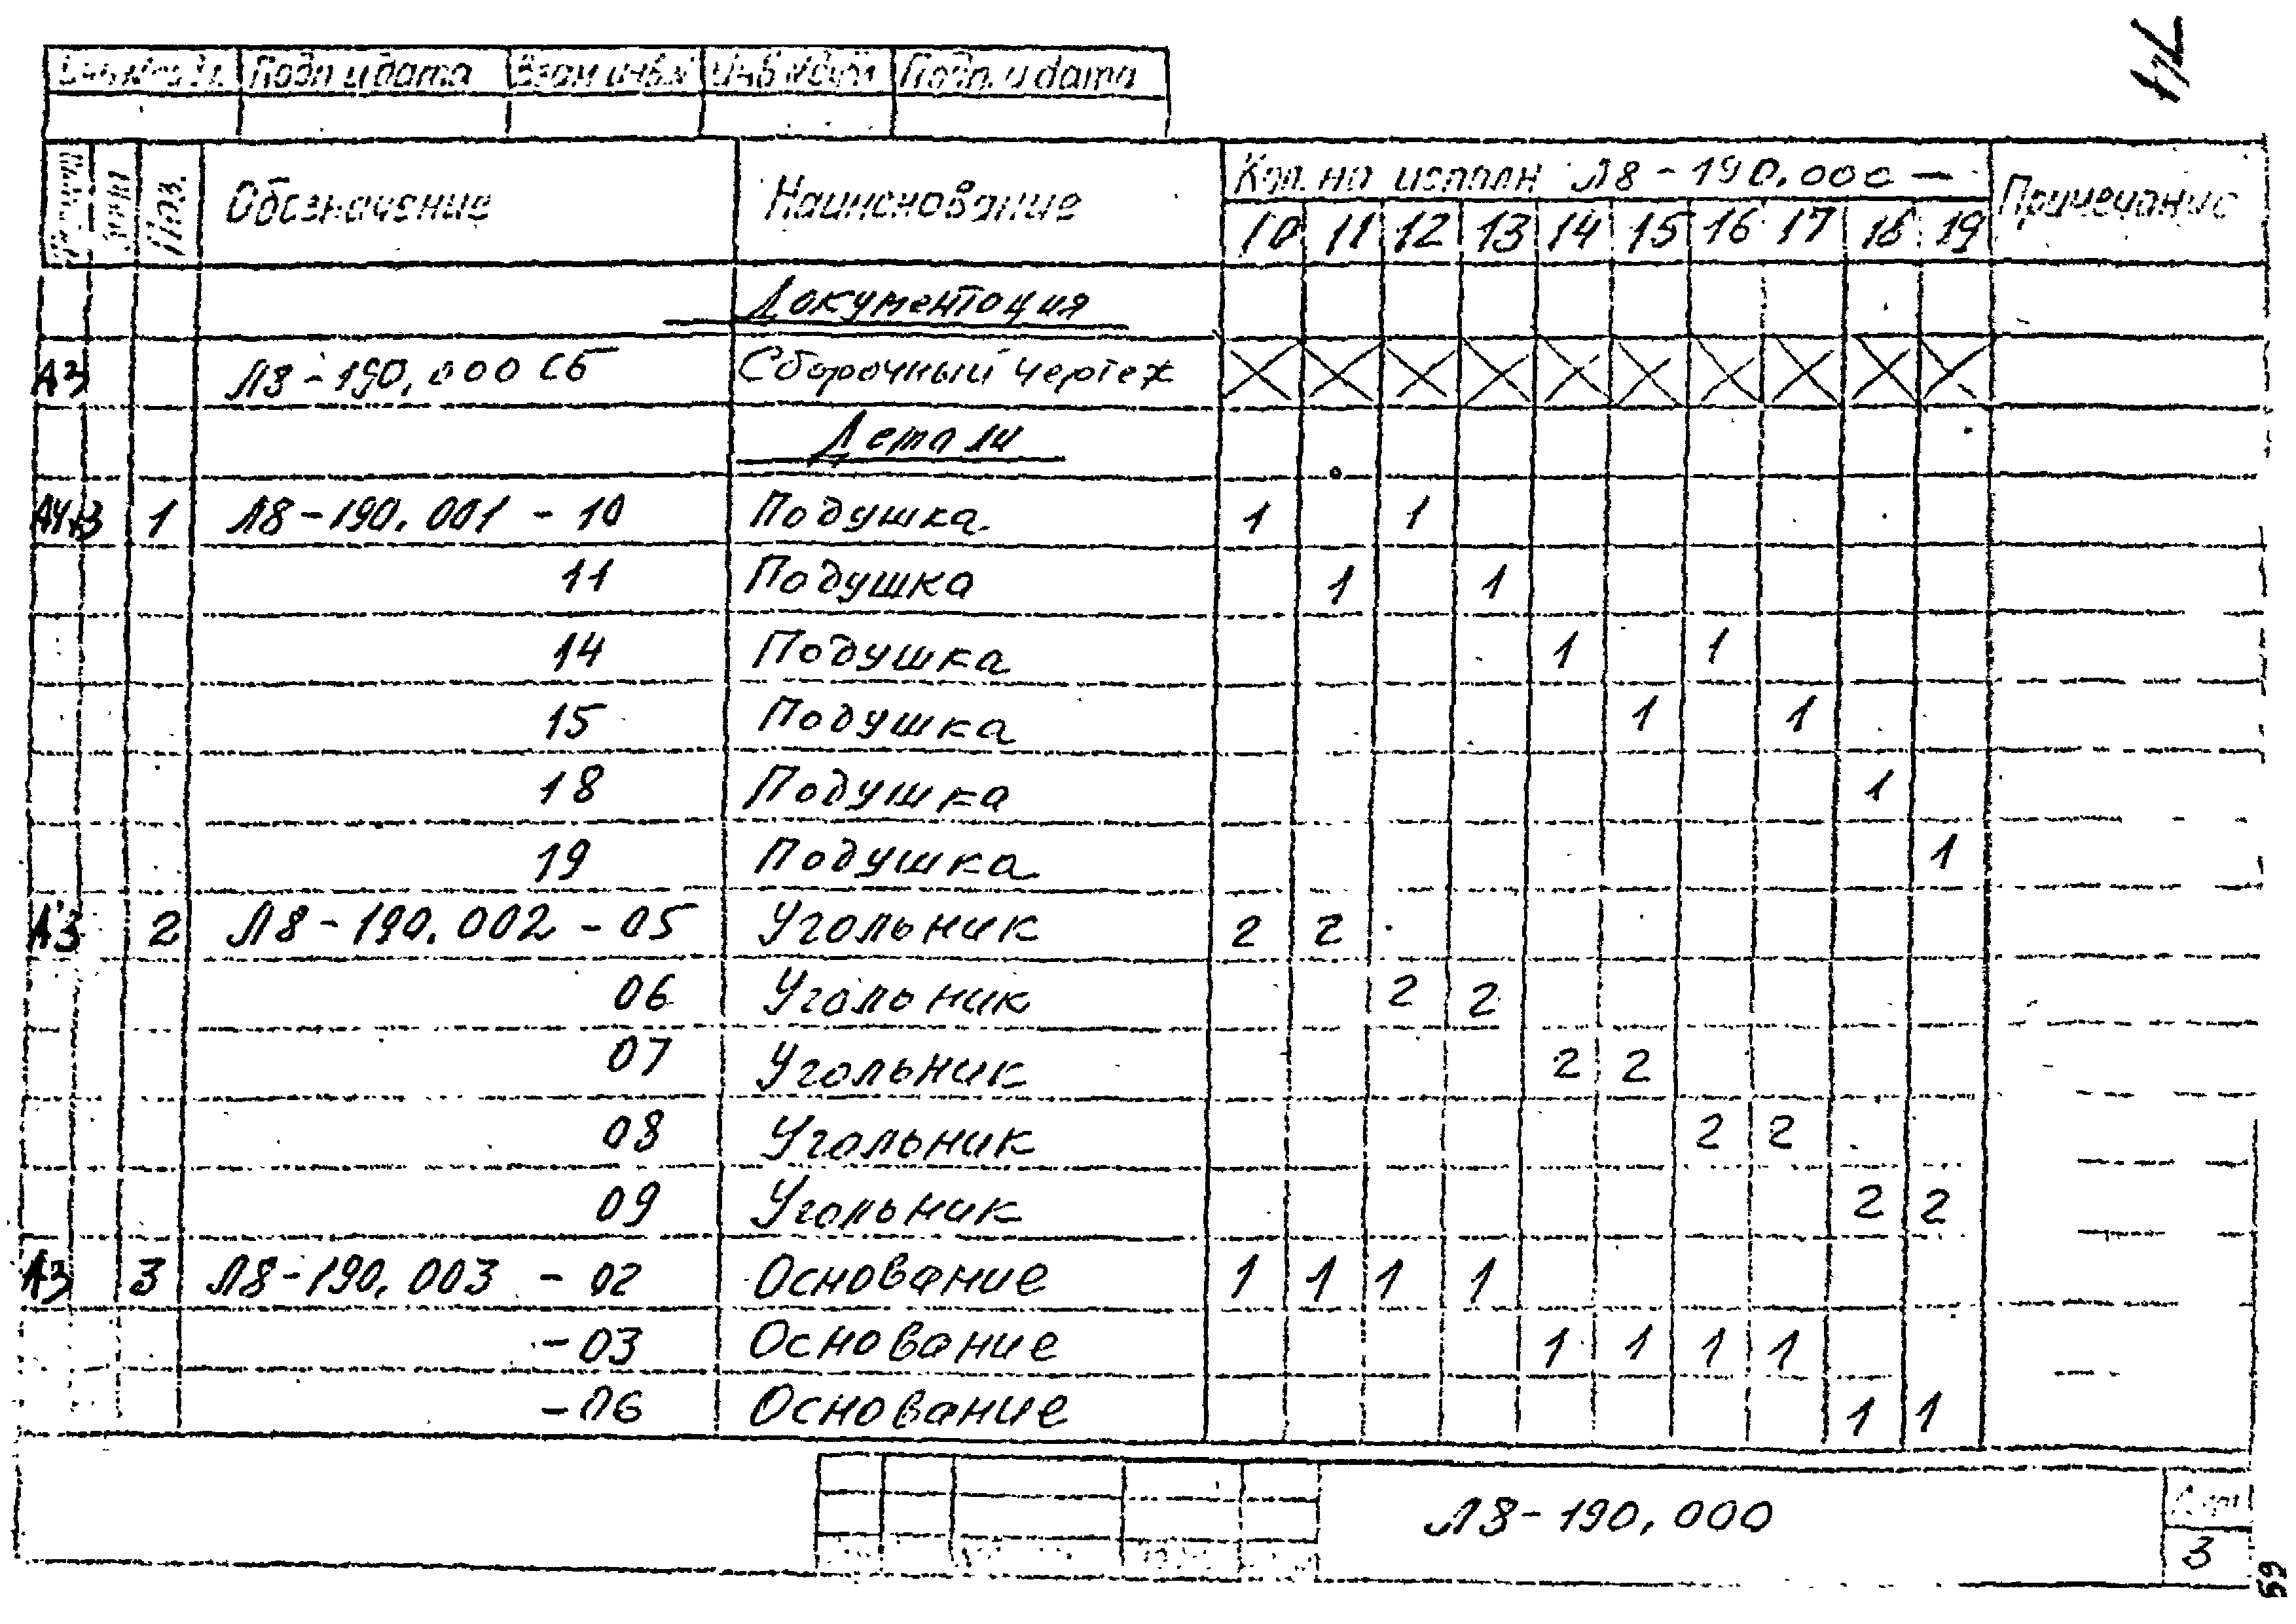 Подп и дата Взам инв.№ Подп. и дата
Поз. Обозначение Наименование Кол. на исполн Л8-190.000 — Примечание
10 11 12 13 14 15 16 17 18 19
Документация
А3 Л8-190.000 СБ Сборочный чертеж
Детали
А4х3 1 Л8-190.001 - 10 Подушка 1 1
11 Подушка 1 1
14 Подушка 1 1
15 Подушка 1 1
18 Подушка 1
19 Подушка 1
А3 2 Л8-190.002 - 05 Угольник 2 2
06 Угольник 2 2
07 Угольник 2 2
08 Угольник 2 2
09 Угольник 2 2
А3 3 Л8-190.003 - 02 Основание 1 1 1 1
-03 Основание 1 1 1 1
-06 Основание 1 1
Л8-190.000
3
59